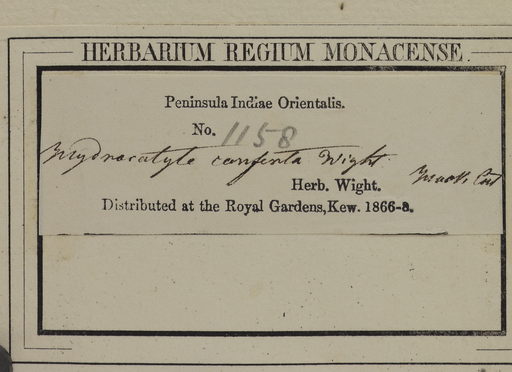 HERBARIUM REGIUM MONACENSE.
Peninsula Indiae Orientalis.
No. 1158
Hydrocotyle conferta Wight
Herb. Wight.
Distributed at the Royal Gardens, Kew. 1866-8.